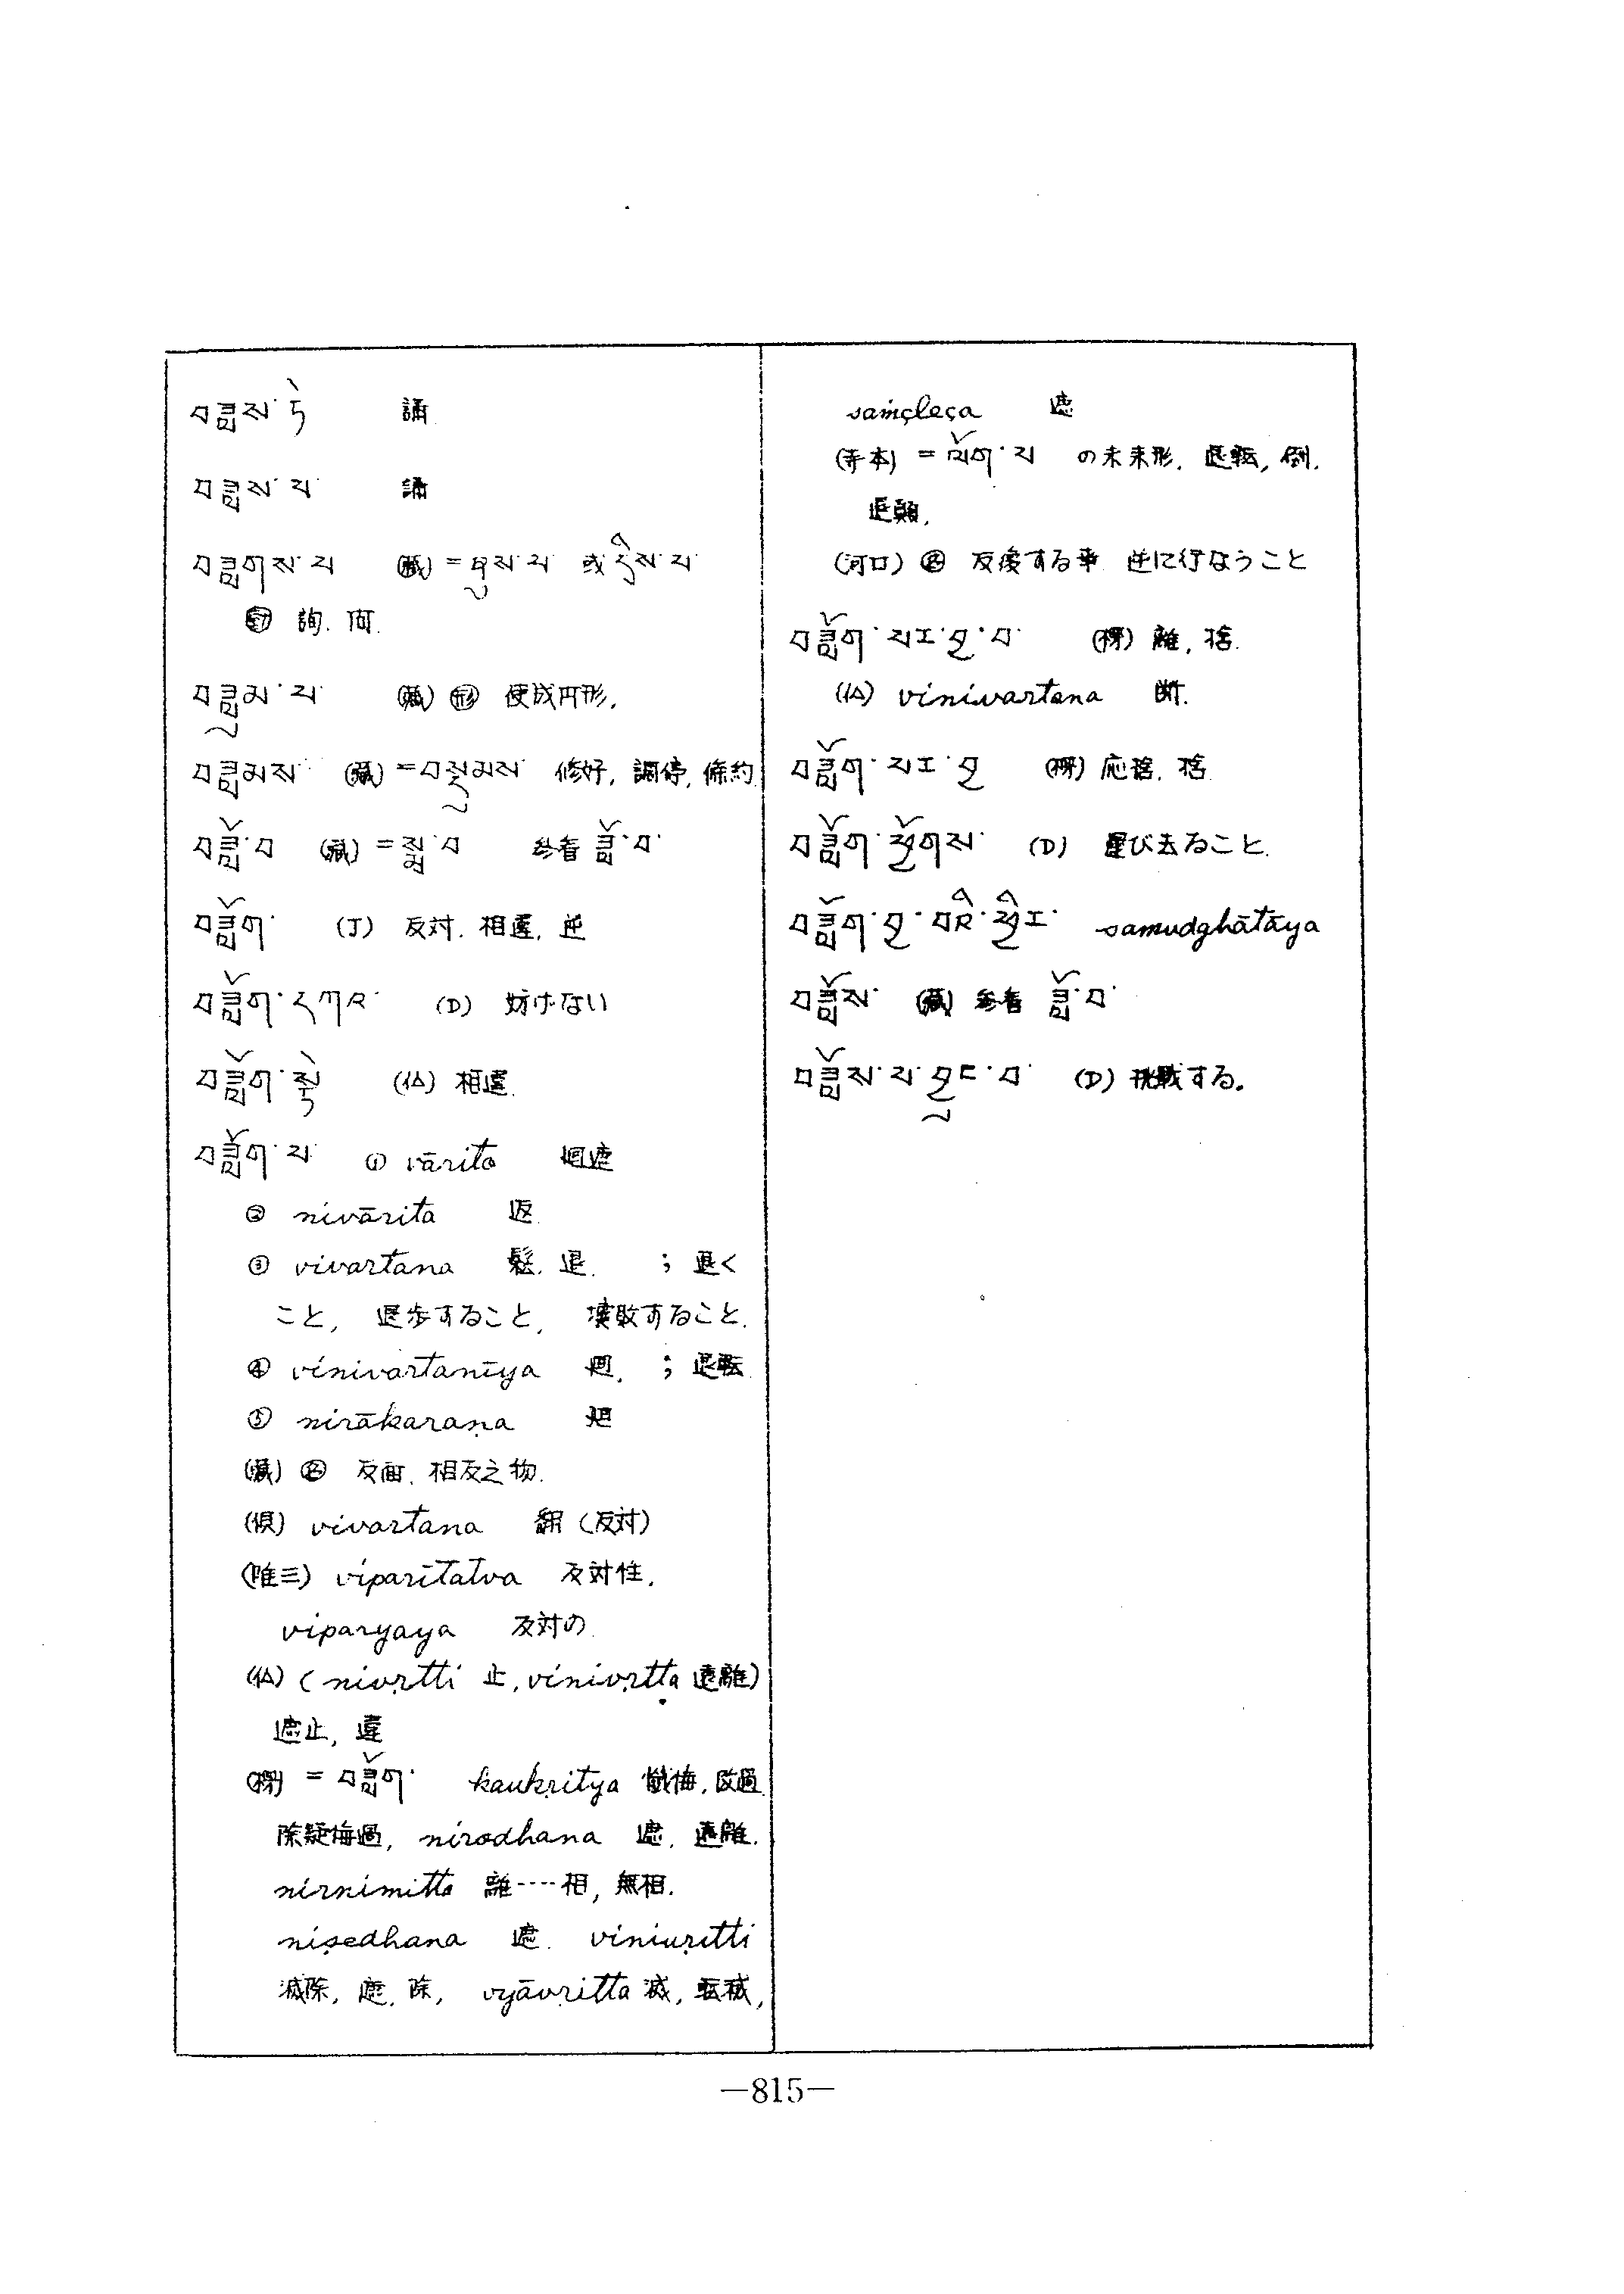 བཟླས་ཏེ 誦
བཟླས་པ 誦
བཟླགས་པ (蔵) = བསྒྲས་པ 或 དྲིས་པ
動 詢. 问.
བཟླུམ་པ (蔵) 形 使成円形.
བཟླམས (蔵) = བསྡུམས 修好, 調停, 條約
བཟློ་བ (蔵) = སླ་བ 參看 ཟློ་བ
བཟློག (丁) 反対. 相違. 逆
བཟློག་དཀའ (D) 妨げない
བཟློག་སྟེ (仏) 相違.
བཟློག་པ ① vārita 廻遮
② nivārita 返
③ vivartana 退. ; 退く
こと, 退歩すること, 壊敗すること.
④ vinivartanīya 廻. ; 退転
⑤ nirākaraṇa 廻
(蔵) 名 反面. 相反之物.
(倶) vivartana 翻 (反対)
(唯三) viparītatva 反対性.
viparyaya 反対の
(仏) (nivṛtti 止, vinivṛtta 遠離)
遮止, 違
(楞) = བཟློག kaukṛitya 懺悔, 改過.
除疑悔過, nirodhana 遮. 遠離.
nirnimitta 離‥‥相, 無相.
niṣedhana 遮. vinivṛitti
滅除, 遮. 除, vyāvṛitta 滅, 転滅,
saṁçleça 遮
(寺本) = ལོག་པ の未来形. 退転, 倒.
退願.
(河口) 名 反復する事 逆に行なうこと
བཟློག་པར་བྱ་བ (楞) 離, 捨.
(仏) vinivartana 断.
བཟློག་པར་བྱ (楞) 応捨. 捨
བཟློག་ཕྱོགས (D) 運び去ること.
བཟློག་བྱ་བའི་ཕྱིར samudghātāya
བཟློས (蔵) 參看 ཟློ་བ
བཟློས་པ་བྱུང་བ (D) 挑戦する。
—815—